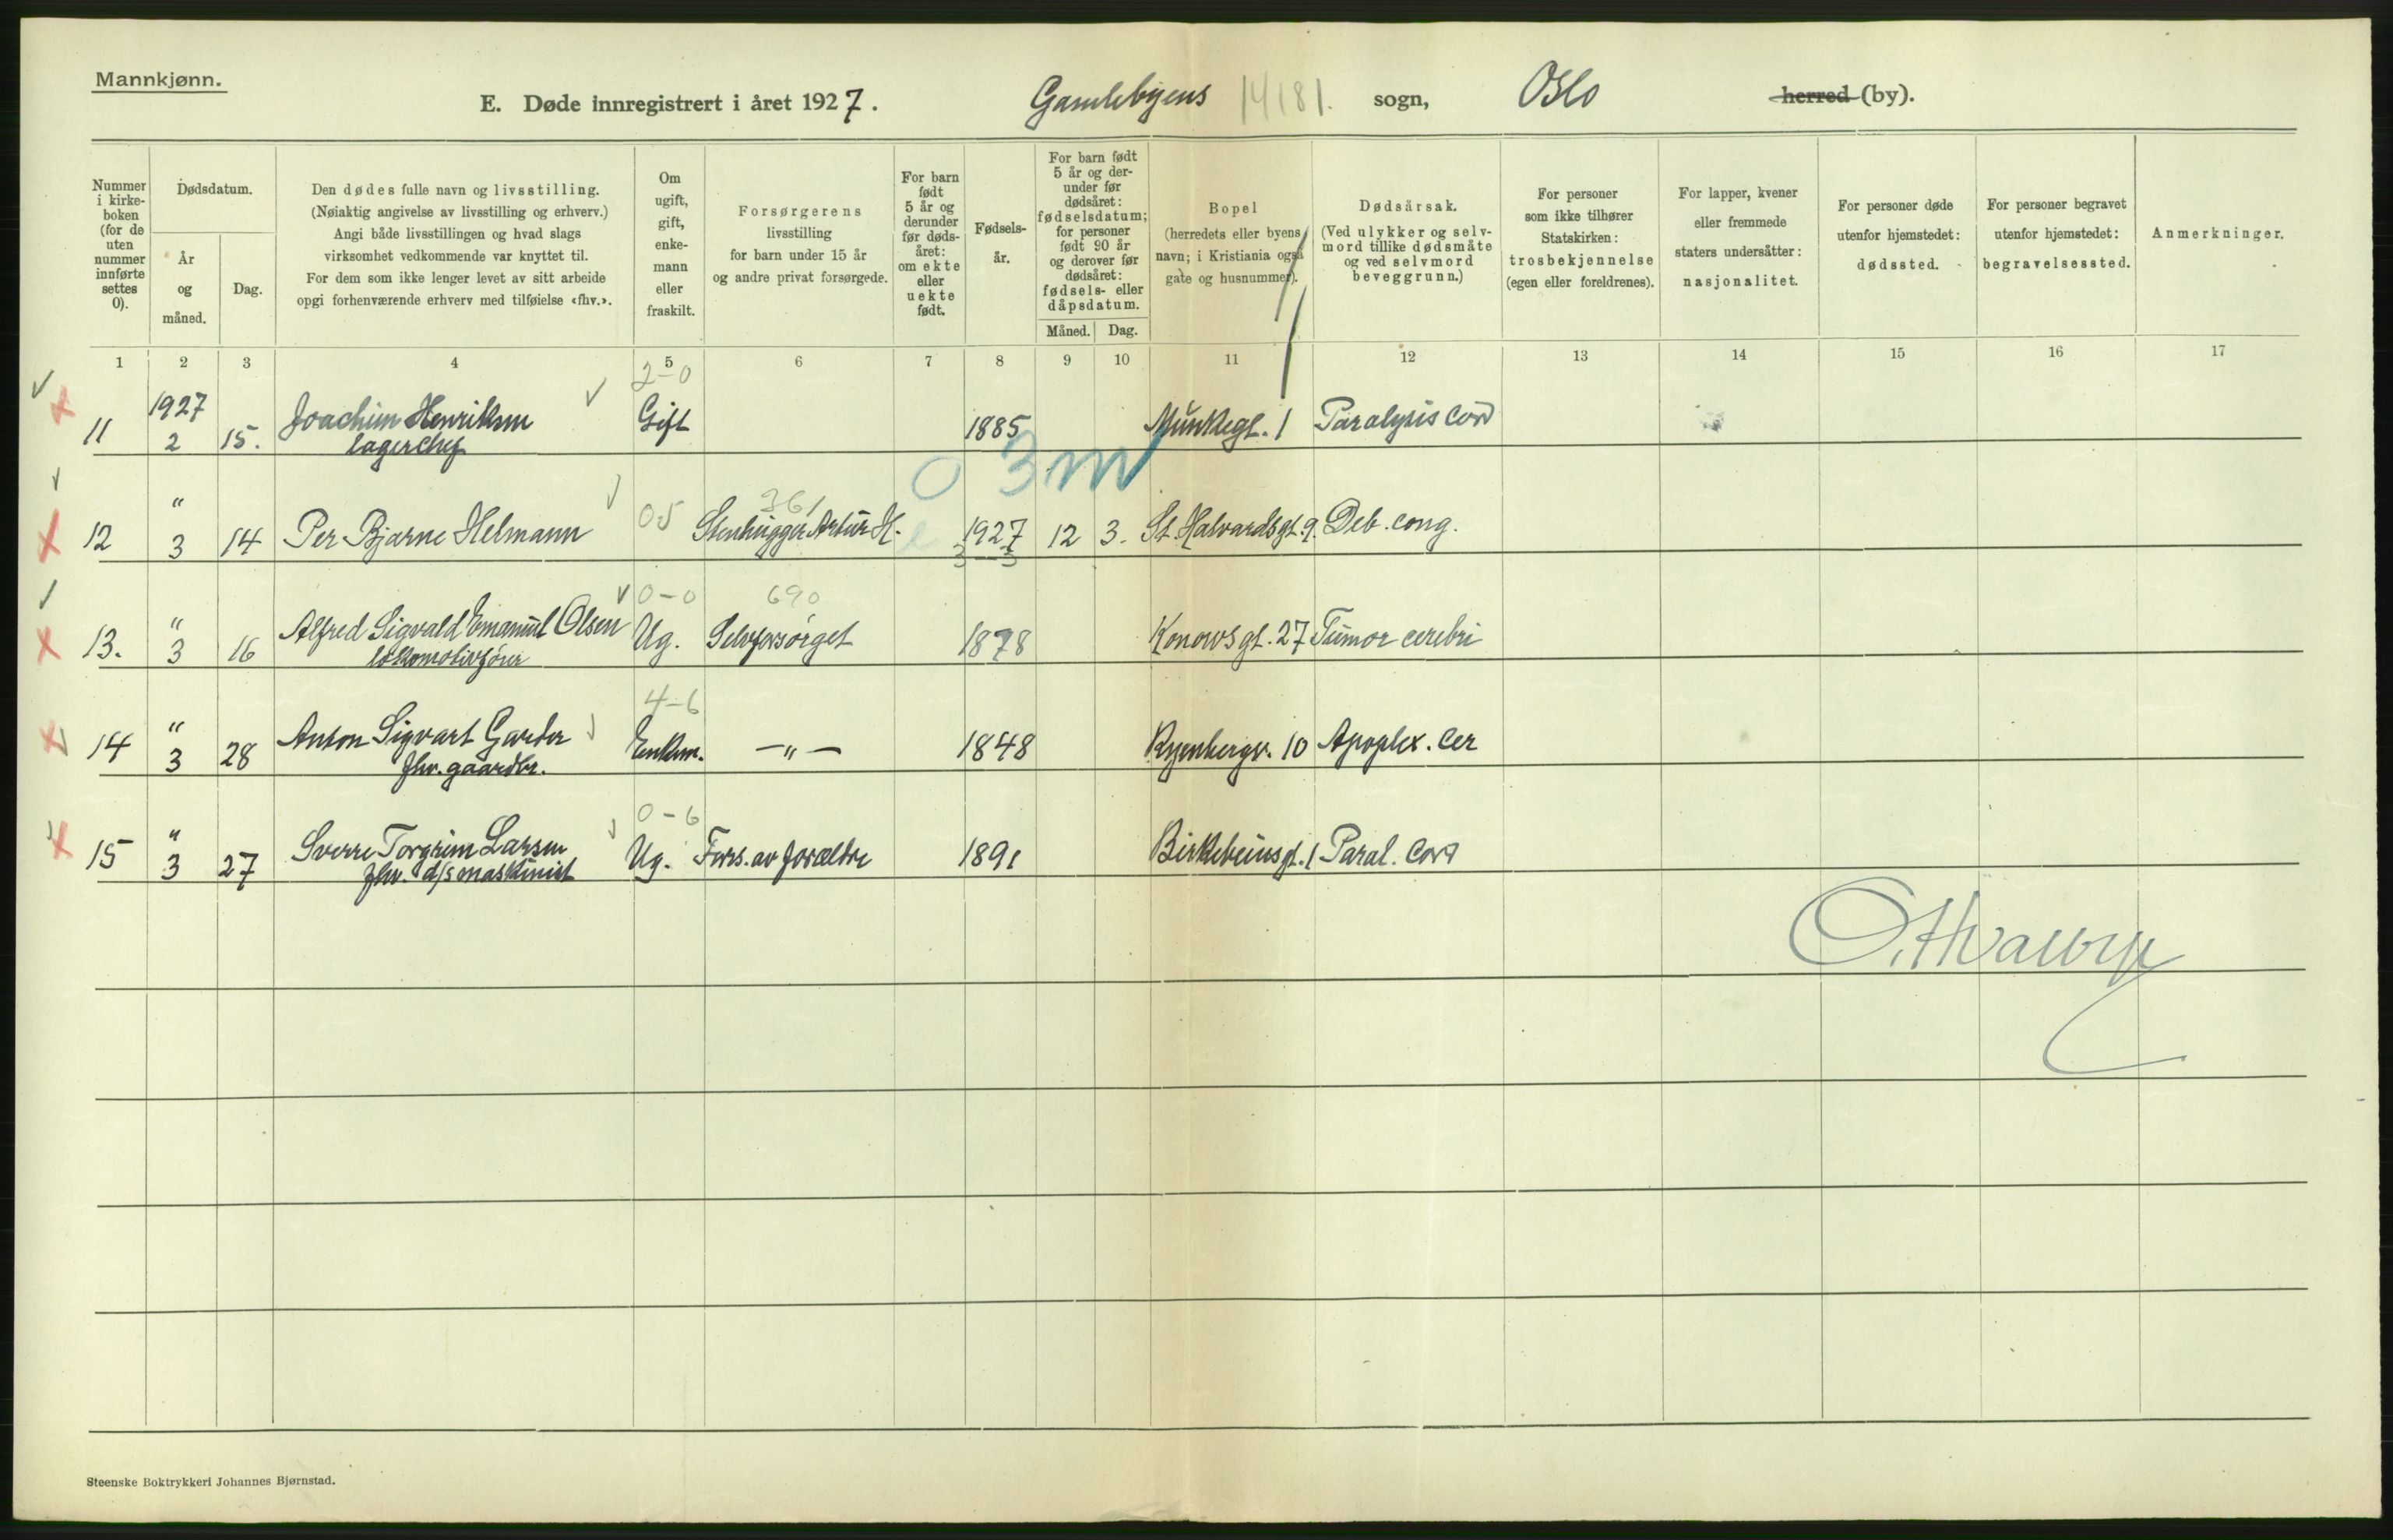 Mannkjønn.
E. Døde innregistrert i året 1927. Gamlebyens 14181. sogn, Oslo herred (by).
Nummer i kirkeboken (for de uten nummer innførte settes 0).
Dødsdatum.
År og måned.
Dag.
Den dødes fulle navn og livsstilling.
(Nøiaktig angivelse av livsstilling og erhverv.)
Angi både livsstillingen og hvad slags
virksomhet vedkommende var knyttet til.
For dem som ikke lenger levet av sitt arbeide
opgi forhenværende erhverv med tilføielse «fhv.».
Om ugift, gift, enkemann eller fraskilt.
Forsørgerens
livsstilling
for barn under 15 år
og andre privat forsørgede.
For barn født 5 år og derunder før dødsåret: om ekte eller uekte født.
Fødselsår.
For barn født 5 år og derunder før dødsåret: fødselsdatum; for personer født 90 år og derover før dødsåret: fødsels- eller dåpsdatum.
Måned. Dag.
Bopel
(herredets eller byens
navn; i Kristiania også
gate og husnummer).
Dødsårsak.
(Ved ulykker og selvmord tillike dødsmåte og ved selvmord beveggrunn.)
For personer
som ikke tilhører
Statskirken:
trosbekjennelse
(egen eller foreldrenes).
For lapper, kvener
eller fremmede
staters undersåtter:
nasjonalitet.
For personer døde
utenfor hjemstedet:
dødssted.
For personer begravet
utenfor hjemstedet:
begravelsessted.
Anmerkninger.
1 2 3 4 5 6 7 8 9 10 11 12 13 14 15 16 17
2-0
1927
11 2 15. Joachim Henriksen Gift 1885 Munkegt. 1 Paralysis cord
lagerchef
0 3 m
" 361
12 3 14 Per Bjarne Helmann 05 Stenhugger Artur H. e 1927 12 3. St. Halvardsgt. 9. Deb. cong.
3 3
0-0 690
" Alfred Sigvald Emanuel Olsen
13. 3 16 lokomotivfører Ug. Selvforsørget 1878 Konowsgt. 27 Tumor cerebri
4-6
" Anton Sigvart Garder
14 3 28 fhv. gaardbr. Enkem. —"— 1848 Ryenbergv. 10 Apoplex. cer
0-6
" Sverre Torgrim Larsen
15 3 27 fhv. d/s maskinist Ug. Fors. av forældre 1891 Birkebeinsgt. 1 Paral. cord
Steenske Boktrykkeri Johannes Bjørnstad.